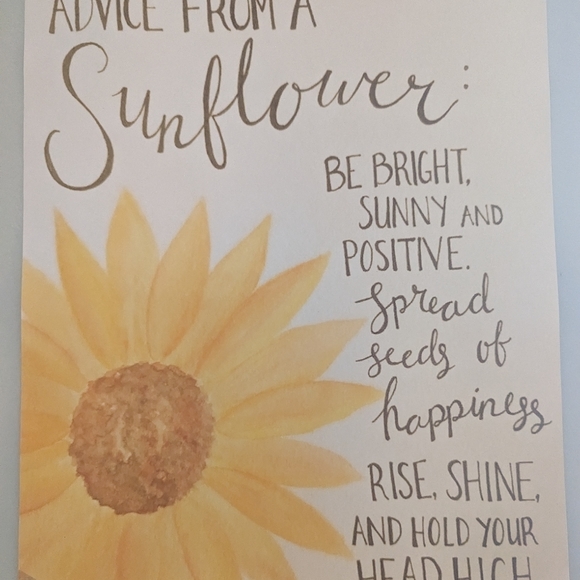 ADVICE FROM A
Sunflower:
BE BRIGHT,
SUNNY AND
POSITIVE.
Spread
seeds of
happiness
RISE, SHINE,
AND HOLD YOUR
HEAD HIGH